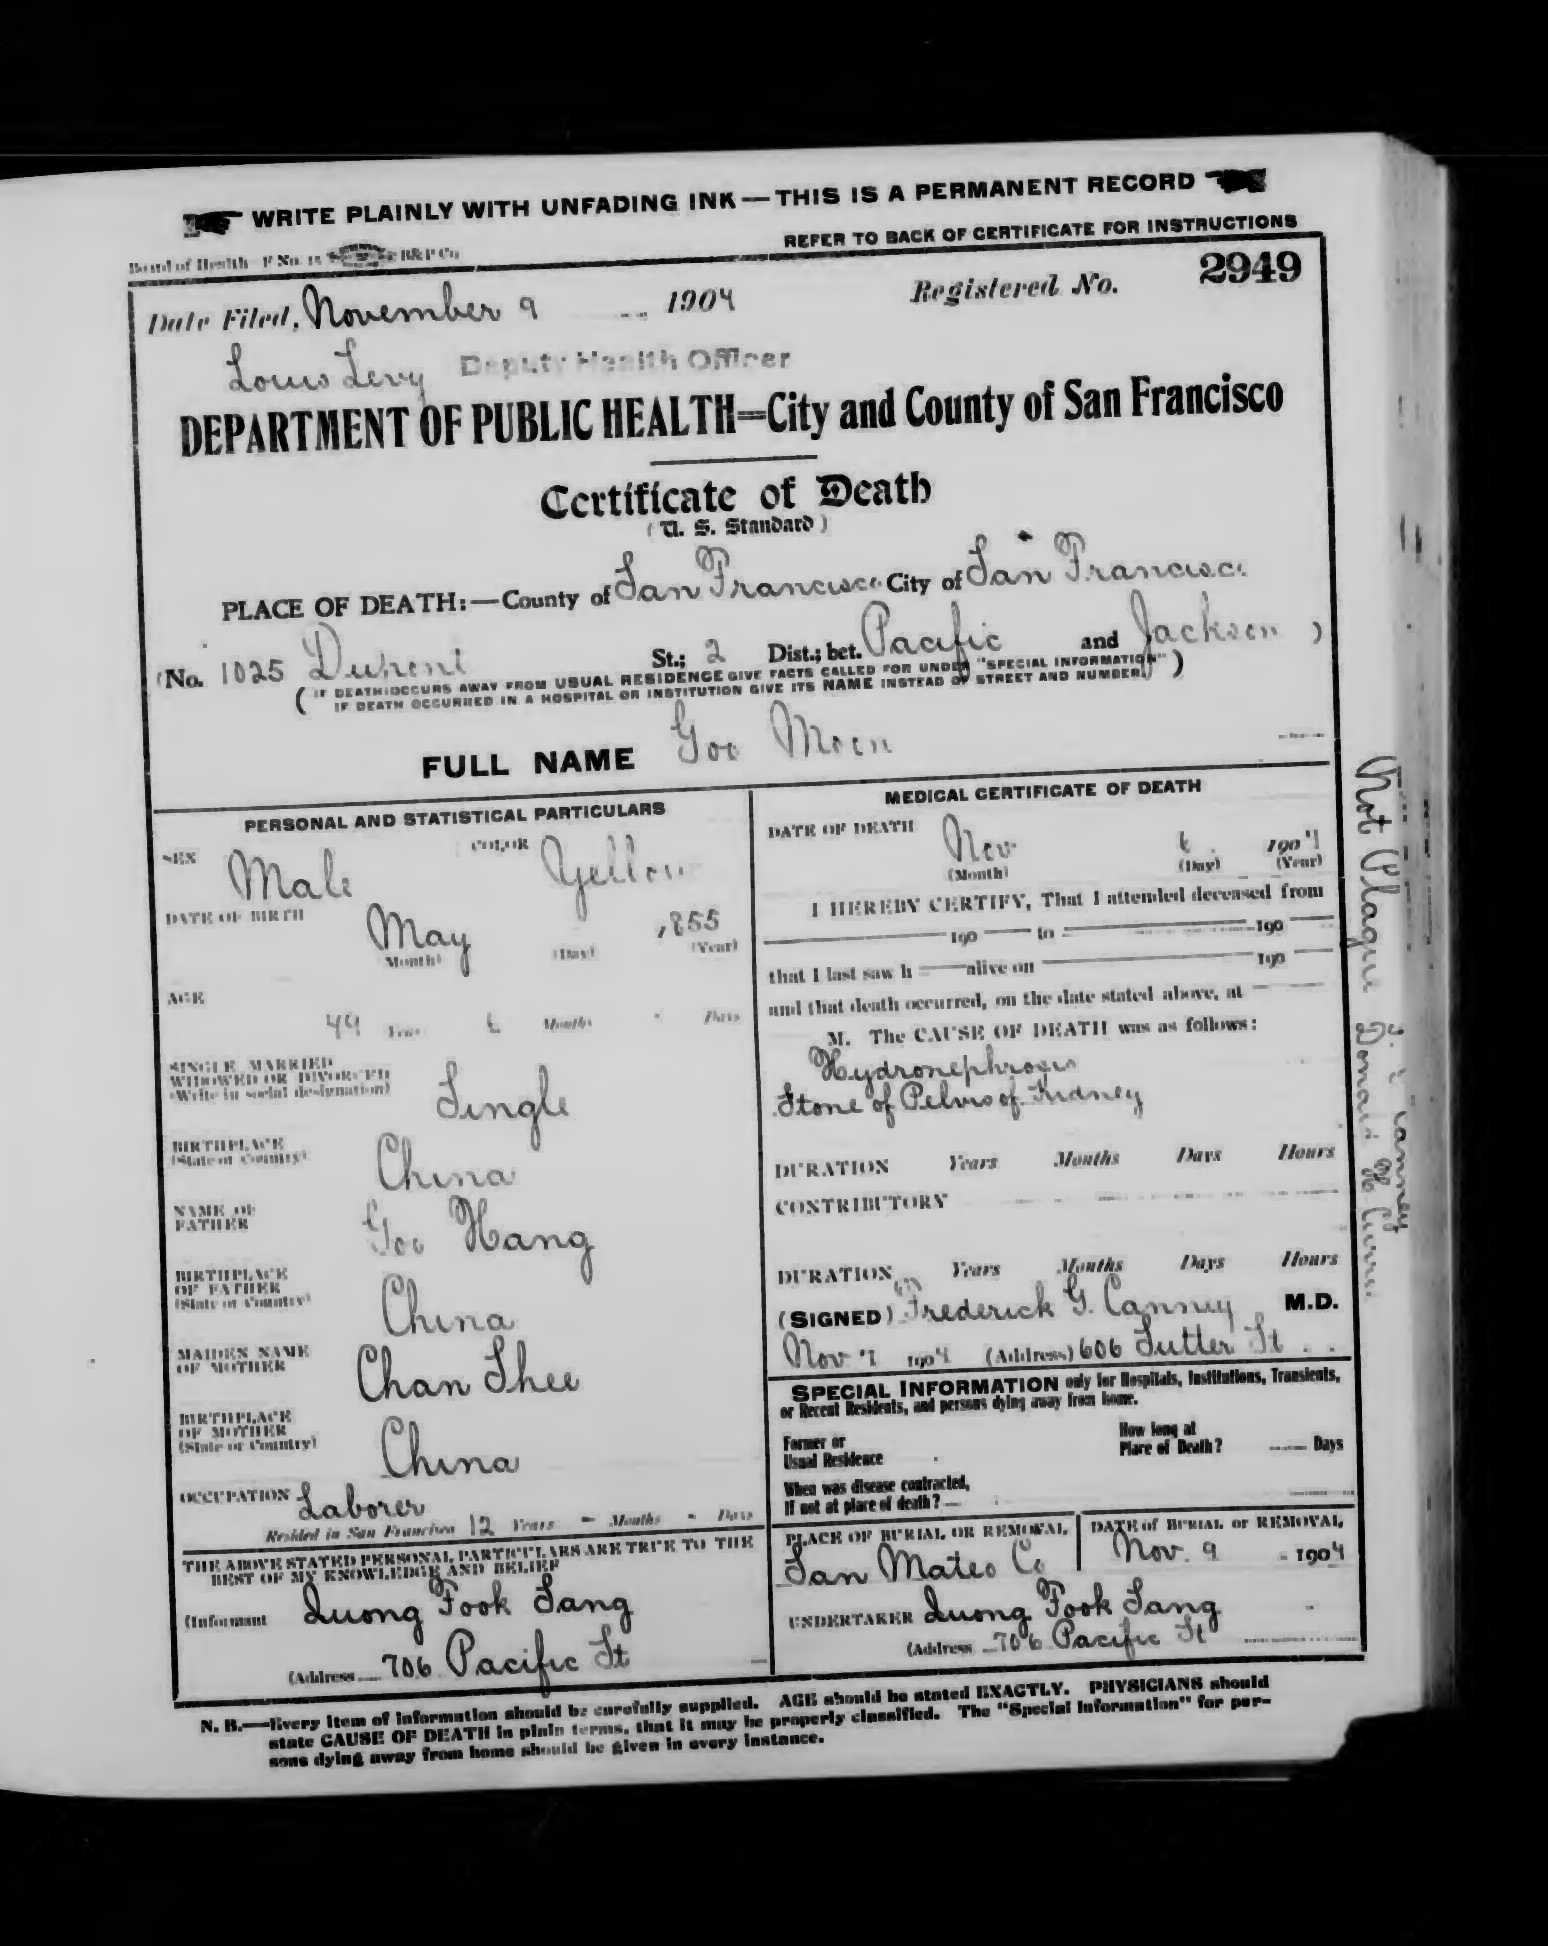 WRITE PLAINLY WITH UNFADING INK — THIS IS A PERMANENT RECORD
Board of Health F No. 15 B&P Co
REFER TO BACK OF CERTIFICATE FOR INSTRUCTIONS
Date Filed, November 9 1904 Registered No. 2949
Louis Levy Deputy Health Officer
DEPARTMENT OF PUBLIC HEALTH=City and County of San Francisco
Certificate of Death
(U. S. Standard)
PLACE OF DEATH:—County of San Francisco City of San Francisco
(No. 1025 Dupont St.; 2 Dist.; bet. Pacific and Jackson )
( IF DEATH OCCURS AWAY FROM USUAL RESIDENCE GIVE FACTS CALLED FOR UNDER "SPECIAL INFORMATION" )
IF DEATH OCCURRED IN A HOSPITAL OR INSTITUTION GIVE ITS NAME INSTEAD OF STREET AND NUMBER.
FULL NAME Goo Moen
PERSONAL AND STATISTICAL PARTICULARS
SEX Male COLOR Yellow
DATE OF BIRTH May 1855
(Month) (Day) (Year)
AGE 49 Years 6 Months - Days
SINGLE MARRIED
WIDOWED OR DIVORCED
(Write in social designation) Single
BIRTHPLACE
(State or Country) China
NAME OF
FATHER Goo Hang
BIRTHPLACE
OF FATHER
(State or Country) China
MAIDEN NAME
OF MOTHER Chan Shee
BIRTHPLACE
OF MOTHER
(State or Country) China
OCCUPATION Laborer
Resided in San Francisco 12 Years - Months - Days
THE ABOVE STATED PERSONAL PARTICULARS ARE TRUE TO THE
BEST OF MY KNOWLEDGE AND BELIEF
(Informant Quong Fook Tang
(Address 706 Pacific St
MEDICAL CERTIFICATE OF DEATH
DATE OF DEATH Nov 6 1904
(Month) (Day) (Year)
I HEREBY CERTIFY, That I attended deceased from
190 to 190
that I last saw h alive on 190
and that death occurred, on the date stated above, at
M. The CAUSE OF DEATH was as follows:
Hydronephrosis
Stone of Pelvis of Kidney
DURATION Years Months Days Hours
CONTRIBUTORY
DURATION Years Months Days Hours
(SIGNED) Frederick G. Canney M.D.
Nov 7 1904 (Address) 606 Sutter St
SPECIAL INFORMATION only for Hospitals, Institutions, Transients,
or Recent Residents, and persons dying away from home.
Former or
Usual Residence
How long at
Place of Death? Days
When was disease contracted,
If not at place of death?
PLACE OF BURIAL OR REMOVAL
San Mateo Co
DATE of BURIAL or REMOVAL
Nov. 9 1904
UNDERTAKER Quong Fook Tang
(Address 706 Pacific St
N. B.—Every item of information should be carefully supplied. AGE should be stated EXACTLY. PHYSICIANS should
state CAUSE OF DEATH in plain terms, that it may be properly classified. The "Special Information" for per-
sons dying away from home should be given in every instance.
Not Plague
Canney
Donald H Currie